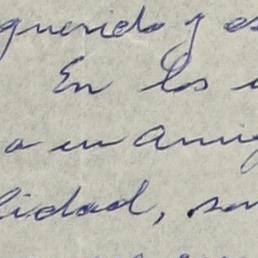 querido y es
En los
a un amig
lidad, son